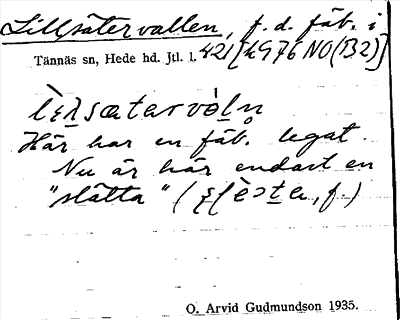 Lillsätervallen, f. d. fäb. i
Tännäs sn, Hede hd. Jtl. l. 421[kG76 NO(B2)]
Här har en fäb. legat.
Nu är här endast en
"slåtta" (
O. Arvid Gudmundson 1935.